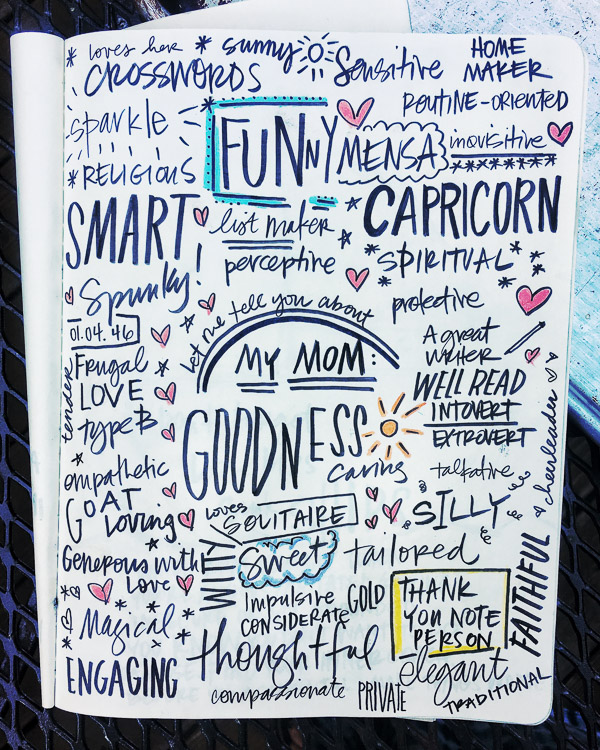 loves her
CROSSWORDS
sunny
Sensitive
HOME
MAKER
ROUTINE-ORIENTED
sparkle
FUNNY
MENSA
inquisitive
RELIGIOUS
SMART
list maker
CAPRICORN
perceptive
SPIRITUAL
Spunky!
protective
01.04.46
let me tell you about
MY MOM:
A great
WRITER
Frugal
tender
LOVE
type B
WELL READ
INTOVERT
EXTROVERT
GOODNESS
caring
talkative
cheerleader
empathetic
GOAT
loving
loves
SOLITAIRE
SILLY
Generous with
Love
WITTY
sweet
tailored
FAITHFUL
Impulsive
CONSIDERATE
GOLD
THANK
YOU NOTE
PERSON
Magical
thoughtful
elegant
ENGAGING
compassionate
PRIVATE
TRADITIONAL